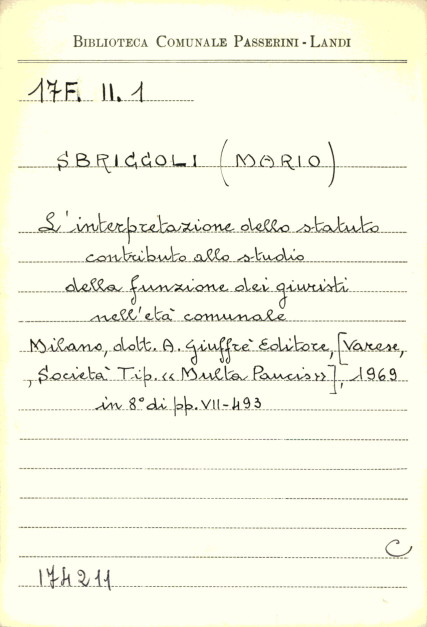 BIBLIOTECA COMUNALE PASSERINI - LANDI
17F. II. 1
SBRIGGOLI (MARIO)
L'interpretazione dello statuto
contributo allo studio
della funzione dei giuristi
nell'età comunale
Milano, dott. A. Giuffrè Editore, [Varese,
, Società Tip. «Multa Paucis»], 1969
in 8° di pp. VII-493
C
174211